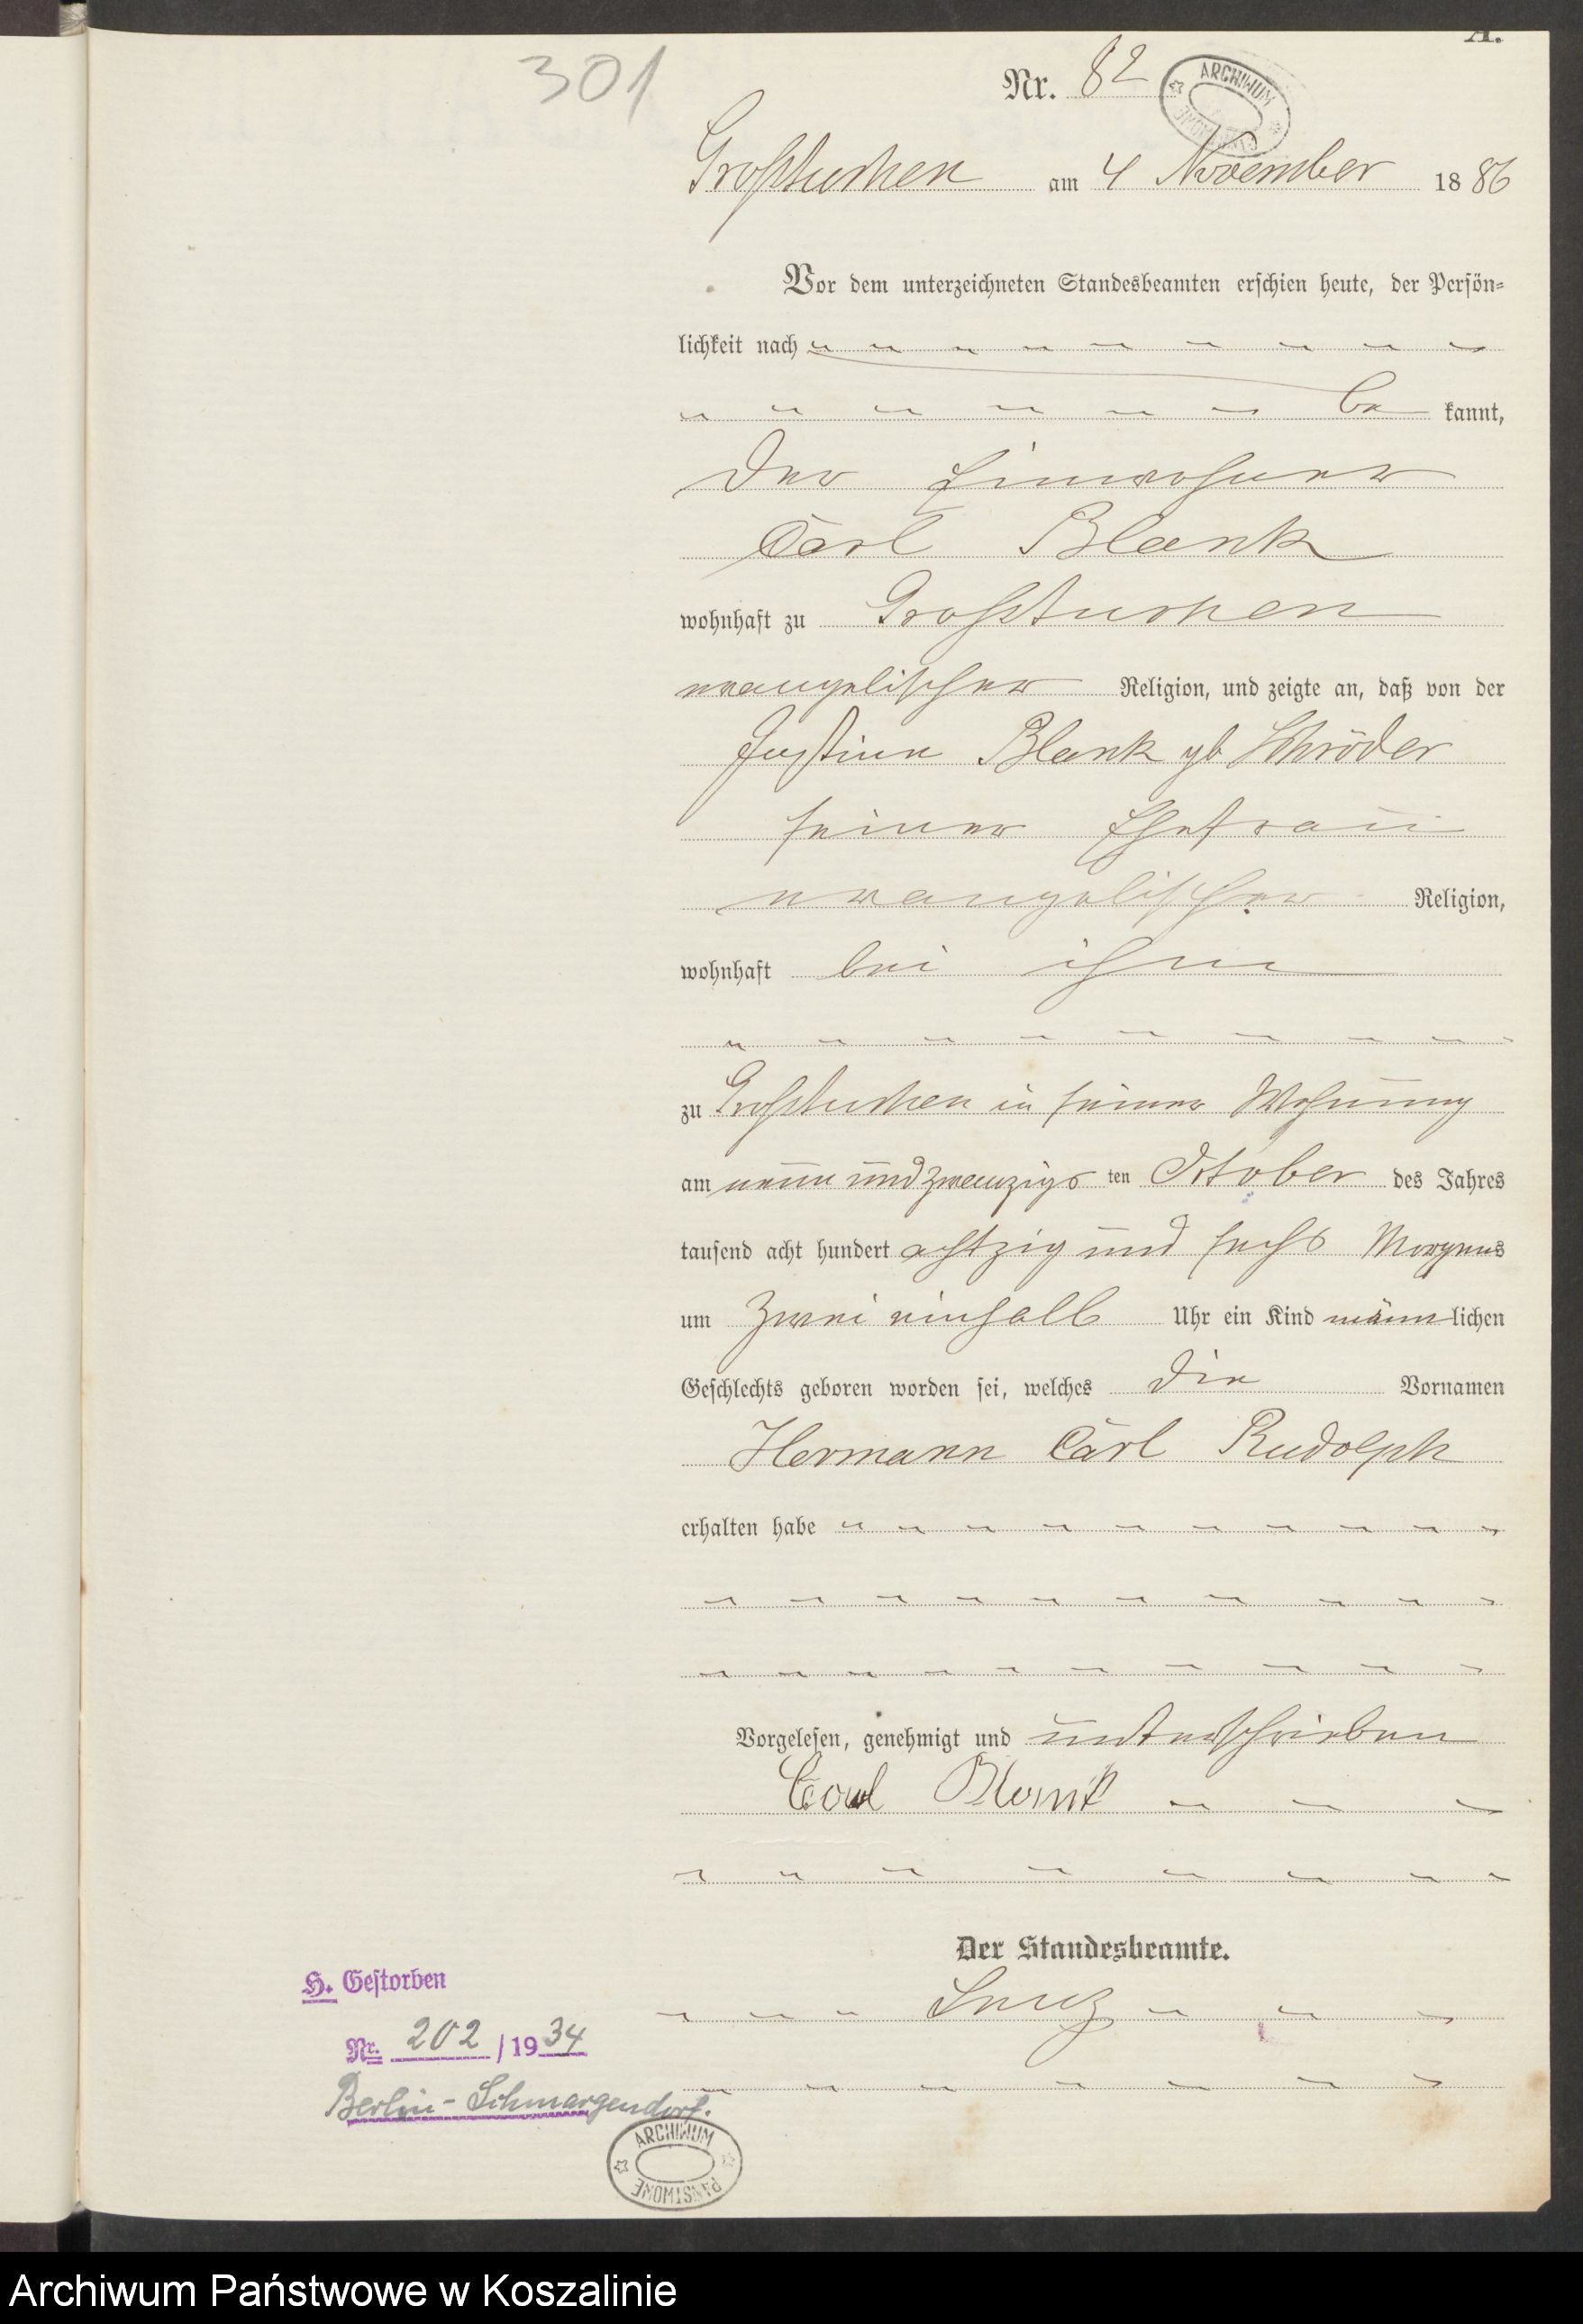 A.
301
Nr. 82
ARCHIWUM PAŃSTWOWE
Großtuchen am 4 November 1886
Vor dem unterzeichneten Standesbeamten erschien heute, der Persön-
lichkeit nach
be kannt,
der Einwohner
Carl Blank
wohnhaft zu Großtuchen
evangelischer Religion, und zeigte an, daß von der
Justine Blank gb Schröder
seiner Ehefrau
evangelischer Religion,
wohnhaft bei ihm
zu Großtuchen in seiner Wohnung
am neun und zwanzigs ten October des Jahres
tausend acht hundert achtzig und sechs Morgens
um zwei einhalb Uhr ein Kind männlichen
Geschlechts geboren worden sei, welches die Vornamen
Hermann Carl Rudolph
erhalten habe
Vorgelesen, genehmigt und unterschrieben
Carl Blank
Der Standesbeamte.
H. Gestorben
Nr. 202 / 1934
Berlin-Schmargendorf.
ARCHIWUM PAŃSTWOWE
Archiwum Państwowe w Koszalinie